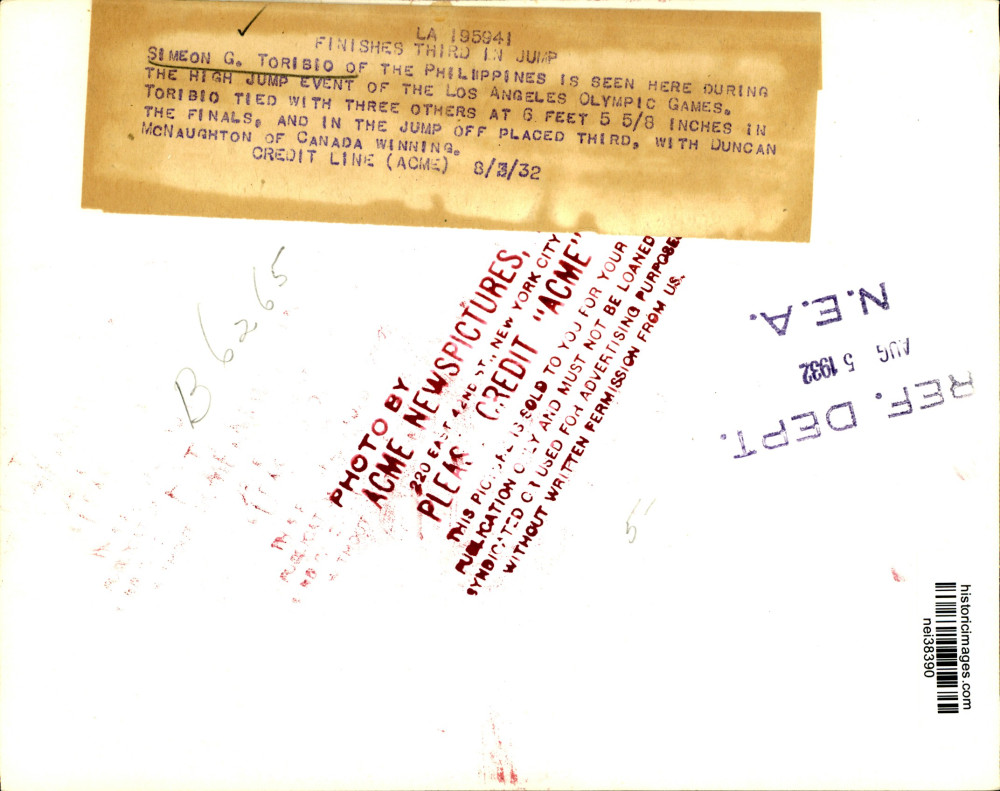 LA 195941
FINISHES THIRD IN JUMP
SIMEON G. TORIBIO OF THE PHILIIPPINES IS SEEN HERE DURING
THE HIGH JUMP EVENT OF THE LOS ANGELES OLYMPIC GAMES.
TORIBIO TIED WITH THREE OTHERS AT 6 FEET 5 5/8 INCHES IN
THE FINALS, AND IN THE JUMP OFF PLACED THIRD, WITH DUNCAN
MCNAUGHTON OF CANADA WINNING.
CREDIT LINE (ACME) 8/3/32
B6265
PHOTO BY
ACME NEWSPICTURES,
220 EAST 42ND ST., NEW YORK CITY
PLEASE CREDIT "ACME"
THIS PICTURE IS SOLD TO YOU FOR YOUR
PUBLICATION ONLY AND MUST NOT BE LOANED
SYNDICATED OR USED FOR ADVERTISING PURPOSES
WITHOUT WRITTEN PERMISSION FROM US.
N.E.A.
AUG 5 1932
REF. DEPT.
5
historicimages.com
nei38390